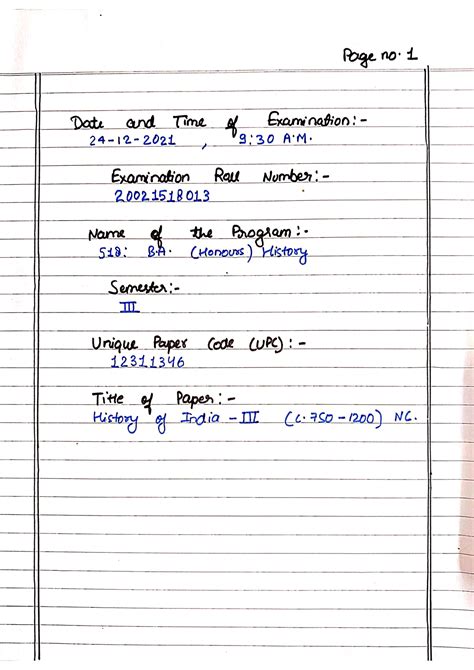 Page no. 1
Date and Time of Examination:-
24-12-2021 , 9:30 A.M.
Examination Roll Number:-
20021518013
Name of the Program:-
518: B.A. (Honours) History
Semester:-
III
Unique Paper Code (UPC):-
12311346
Title of Paper:-
History of India - III (c. 750 - 1200) NC.